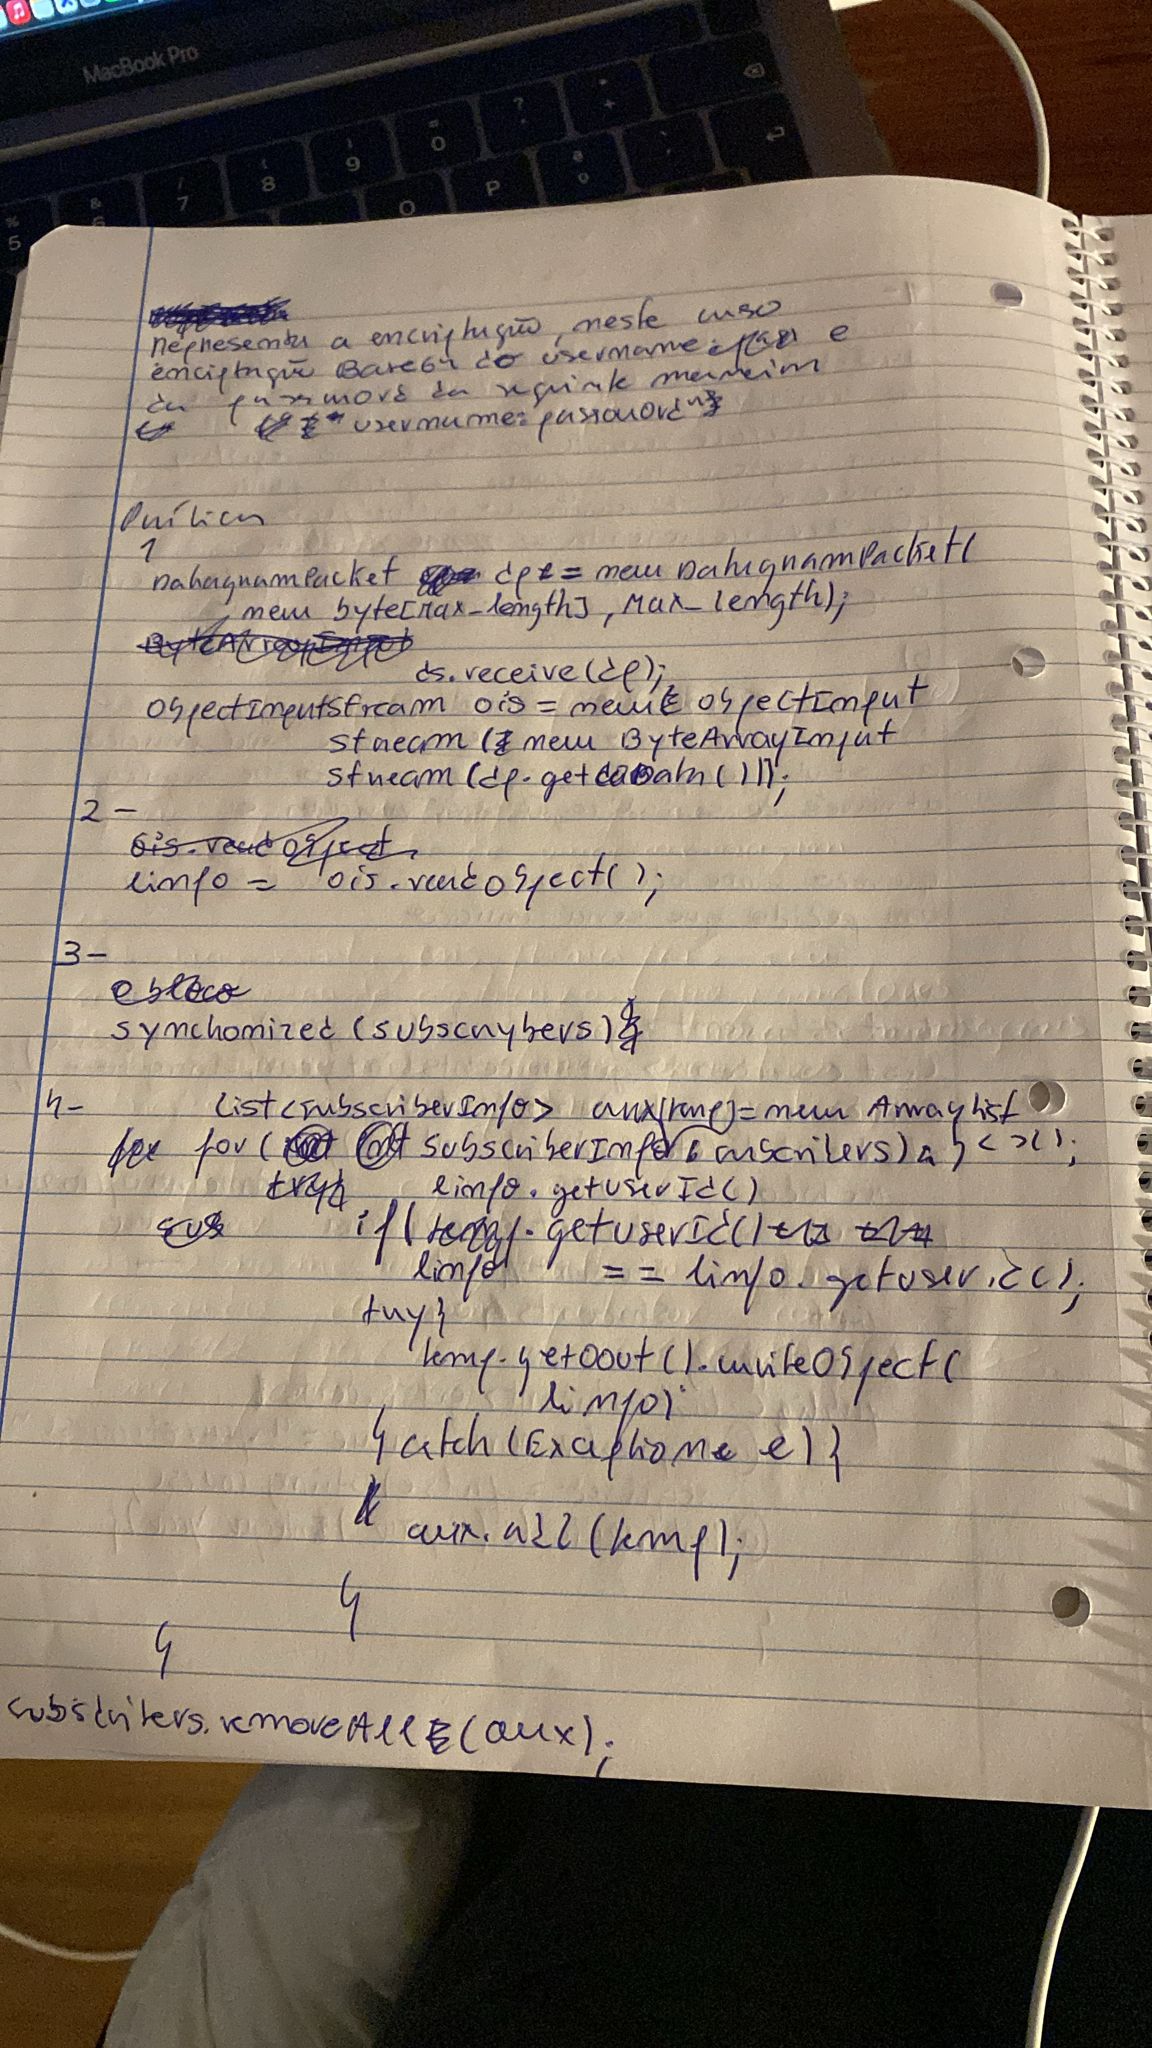 MacBook Pro
representa a encriptação, neste caso
encriptação Base64 do username e
da password da seguinte maneira
"username:password"
Prática
1
DatagramPacket dp = new DatagramPacket(
new byte[Max_length], Max_length);
ds.receive(dp);
ObjectInputStream ois = new ObjectInput
Stream (new ByteArrayInput
Stream (dp.getData()));
2-
ois.readObject
linfo = ois.readObject();
3-
o bloco
synchomized (subscrybers){
4- List<subscriberInfo> aux = new ArrayList
for ( SubscriberInfo : subscribers) <>();
try{ linfo.getUserId()
sub if( temp.getUserId()
linfo == linfo.getuserid();
try{
temp.getOout().writeObject(
linfo);
}catch (Exceptione e){
aux.add(temp);
}
}
subscribers.removeAll(aux);